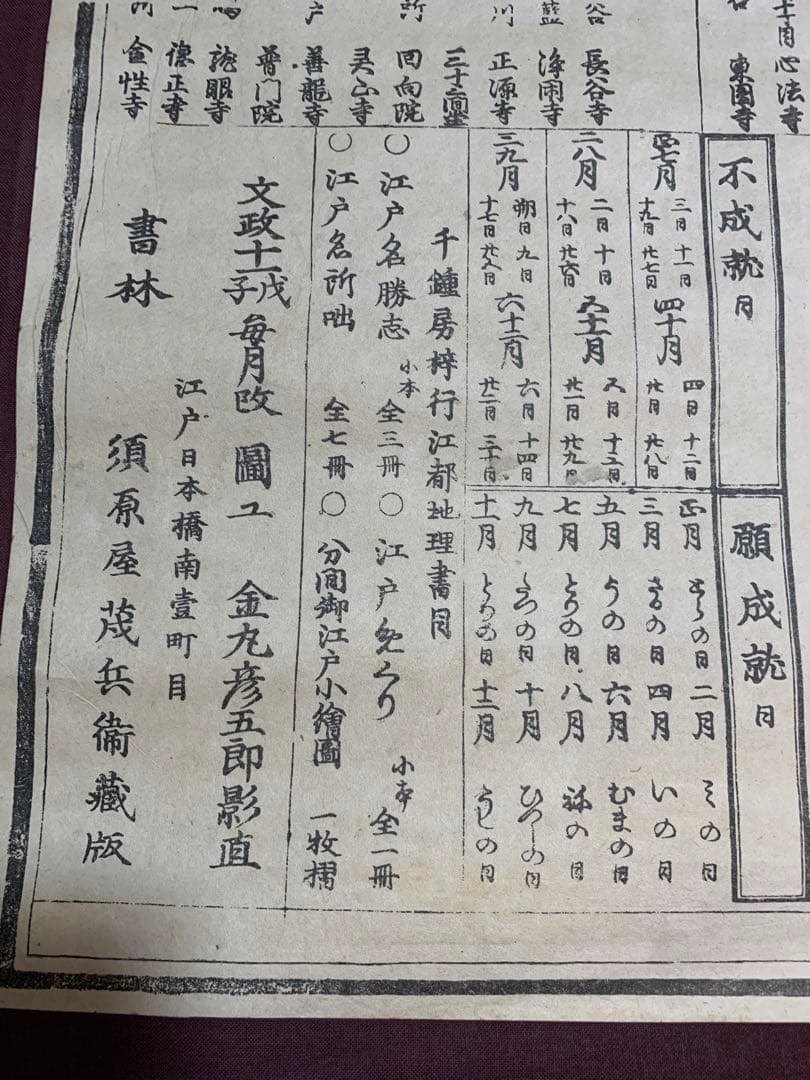 十月心法寺
東圓寺
谷 長谷寺
藍 浄閑寺
川 正源寺
三十三間堂
所 回向院
霊山寺
戸 善龍寺
普门院
龍眼寺
一 徳正寺
金性寺
不成就日
正七月 三日 十一日 十九日 廿七日
四十月 四日 十二日 廿日 廿八日
二八月 二日 十日 十八日 廿六日
五十一月 五日 十三日 廿一日 廿九日
三九月 朔日 九日 十七日 廿五日
六十二月 六日 十四日 廿二日 三十日
願成就日
正月 とらの日 二月 ミの日
三月 さるの日 四月 いの日
五月 うの日 六月 むまの日
七月 とりの日 八月 ねの日
九月 たつの日 十月 ひつしの日
十一月 とりの日 十二月 うしの日
千鍾房梓行江都地理書目
〇江戸名勝志 小本 全三冊 〇江戸めくり 小本 全一冊
〇江戸名所咄 全七冊 〇分间御江戸小繪圖 一牧摺
文政十一戊子毎月改 圖工 金丸彦五郎影直
江戸日本橋南壹町目
書林 須原屋茂兵衞藏版